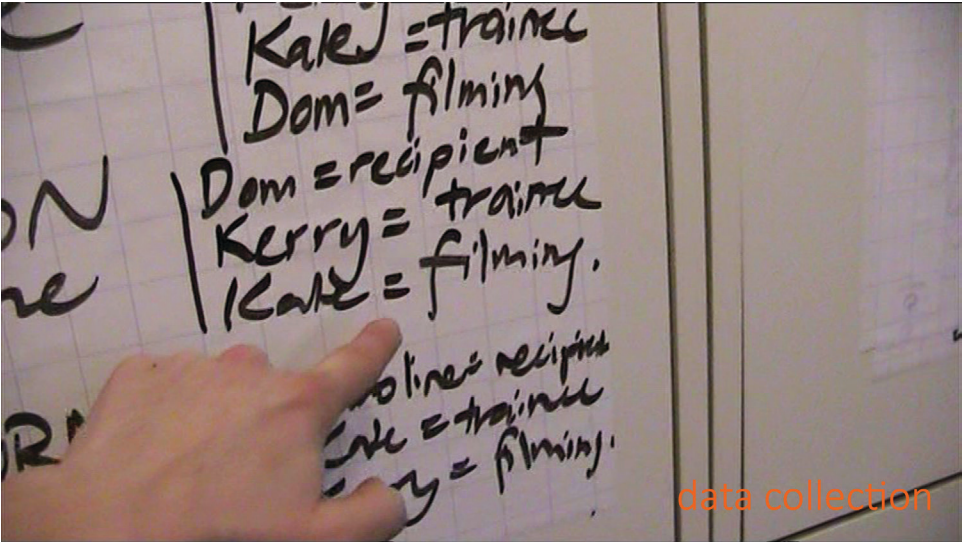 Kate = trainee
Dom = filming
Dom = recipient
Kerry = trainee
Kate = filming.
= recipient
= trainee
= filming.
data collection